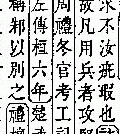 求不汝疵瑕也
故凡用兵者攻堅
周禮冬官考工記
左傳桓六年楚
稱邪以別之禮